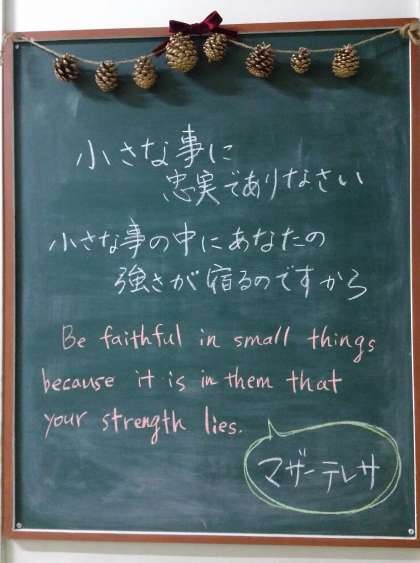 小さな事に
忠実でありなさい
小さな事の中にあなたの
強さが宿るのですから
Be faithful in small things
because it is in them that
your strength lies.
マザーテレサ